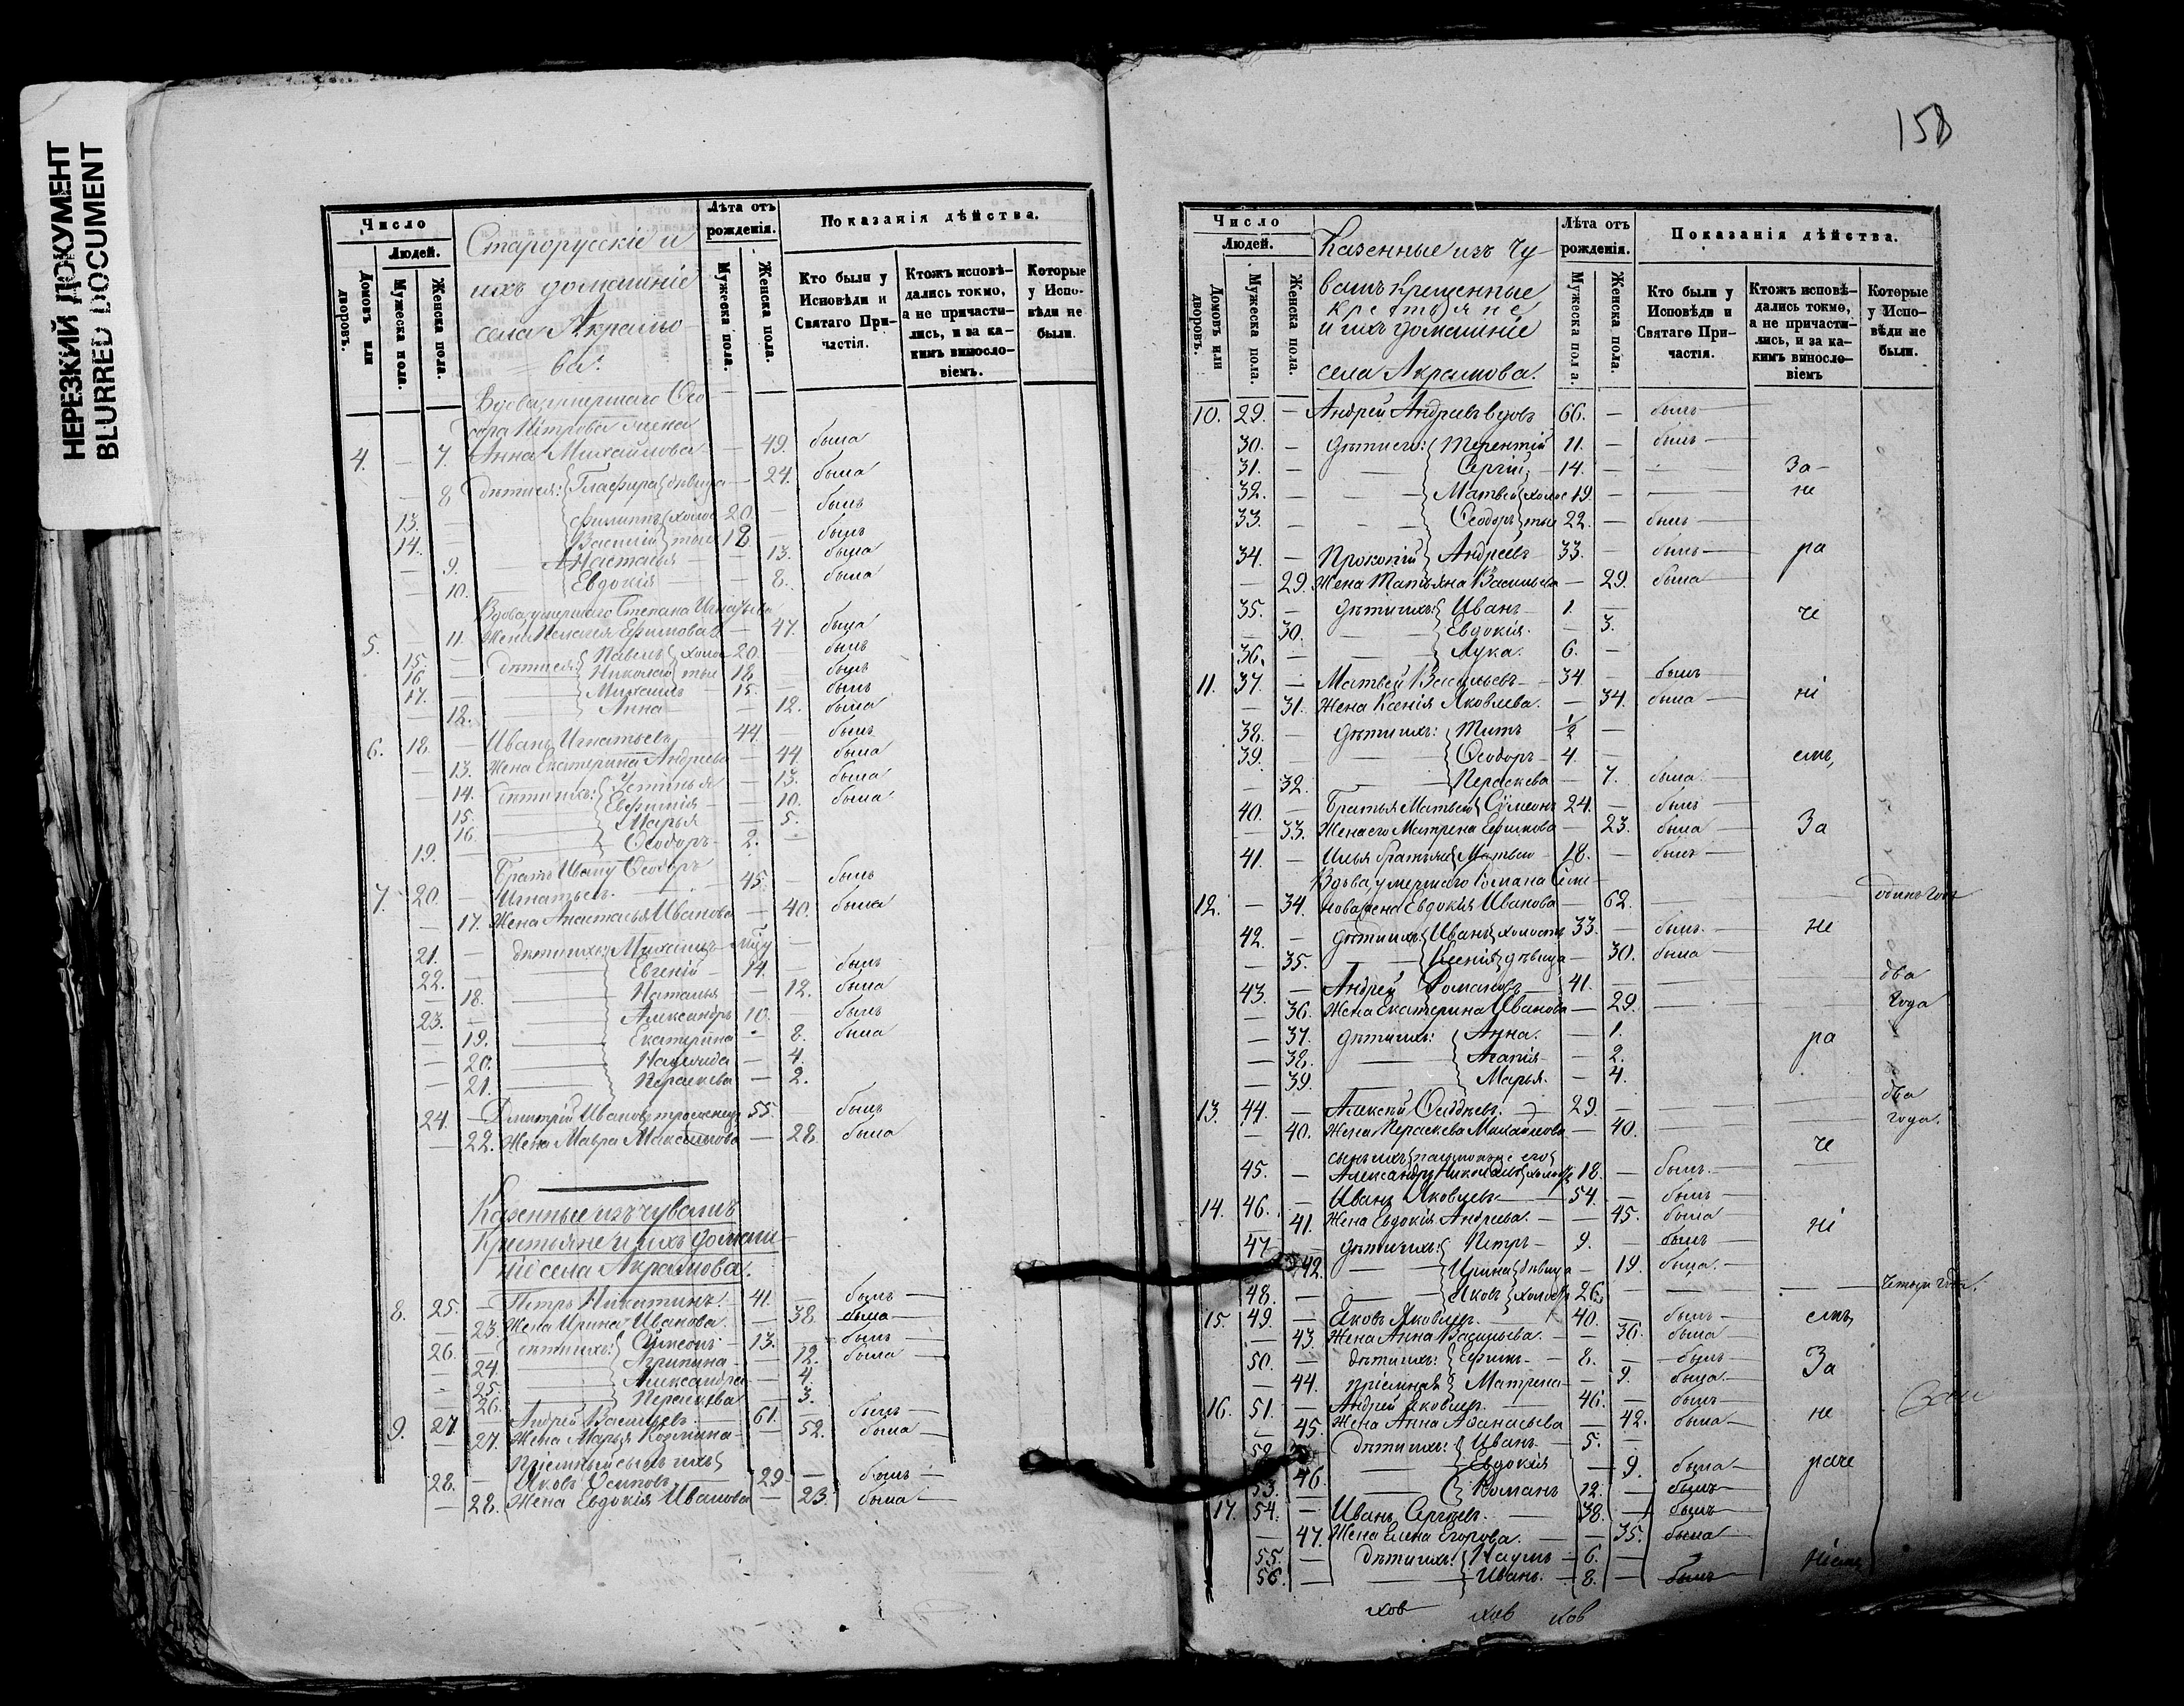 НЕРЕЗКИЙ ДОКУМЕНТ
BLURRED DOCUMENT
Число
Людей.
Домовъ или дворовъ.
Мужеска пола.
Женска пола.
Старорусскіе и
ихъ домашніе
села Акрамо-
ва.
Лѣта отъ рожденія.
Мужеска пола.
Женска пола.
Показанія дѣйства.
Кто были у Исповѣди и Святаго Причастія.
Ктожъ исповѣ-
дались токмо,
а не причасти-
лись, и за ка-
кимъ винословіемъ.
Которые у Испо-
вѣди не были.
Вдова умершаго Ѳео
дора Петрова жена
4. — 7. Анна Михайлова — 49. была
— 8 дѣти ея: Глафира дѣвица — 24. была
13. — Филиппъ холос 20. — былъ
14. — Василій тые 18 — былъ
— 9. Анастасья — 13. была
— 10. Евдокія — 8. была
Вдова умершаго Степана Игнатьева
5. — 11. Жена Ефимова — 47. была
15. — дѣти ея: Павелъ холос 20 — былъ
16 — Николай тые 18 — былъ
17. — Михаилъ — 15. — былъ
— 12. Анна — 12. была
6. 18. — Иванъ Игнатьевъ 44. былъ
— 13. Жена Екатерина Андреева — 44. была
— 14. дѣти ихъ: Устинья — 13. была
15. Евфимія — 10. была
16 Марья — 5.
19. Ѳеодоръ 2. —
Братъ Ивану Ѳеодоръ
7. 20. — Игнатьевъ. 45. — былъ
— 17. Жена Анастасья Иванова — 40. была
21. — дѣти ихъ: Михаилъ —
22. — Евгеній — 14. — былъ
— 18. Наталья — 12. была
23. — Александръ 10. — былъ
— 19. Екатерина — 8. была
— 20. — 4.
— 21. Параскева — 2.
24. — Дмитрій Ивановъ 55. — былъ
— 22. Жена Мавра Максимова — 28. была
Казенные изъ чувашъ
Крестьяне и ихъ домаш-
ніе села Акрамова.
8. 25. — Петръ Никитинъ. — 41. — былъ —
— 23. Жена Ирина Иванова. — 38. была —
26. — дѣти ихъ: Сѵмеонъ — 13. — былъ —
— 24. Агрипина — 12. была —
— 25. Александра — 4.
— 26. Параскева — 3.
9. 27. — Андрей Васильевъ. — 61. былъ —
— 27. Жена Марья Козмина — 52. была —
Пріемный сынъ ихъ
28. — Яковъ Осиповъ — 29 — былъ —
— 28. Жена Евдокія Иванова — 23. была —
158
Число
Людей.
Домовъ или дворовъ.
Мужеска пола.
Женска пола.
Казенные изъ Чу-
вашъ крещенные,
крестьяне
и ихъ домашніе
села Акрамова.
Лѣта отъ рожденія.
Мужеска пола.
Женска пола.
Показанія дѣйства.
Кто были у Исповѣди и Святаго Причастія.
Ктожъ исповѣ-
дались токмо,
а не причасти-
лись, и за ка-
кимъ винословіемъ
Которые у Испо-
вѣди не были.
10. 29. — Андрей Андреевъ вдовъ 66. — былъ —
30. — дѣти его: Терентій 11. — былъ —
31. — Сергій — 14. — За-
32. — Матвей холос 19. — не
33. — Ѳеодоръ тые 22. — былъ
34. — Прокопій Андреевъ 33. — былъ — ра
— 29. Жена Татьяна Васильева — 29. была
35. — дѣти ихъ: Иванъ — 1. — че
— 30. Евдокія. — 3.
36. — Лука. 6. —
11. 37. — Матвей Васильевъ — 34. — былъ
— 31. Жена Ксенія Яковлева. — 34. была — ні
38. — дѣти ихъ: Титъ ½ —
39. — Ѳеодоръ — 4. — емъ,
— 32. Параскева — 7. была.
40. — Братья Матвею Сѵмеонъ 24. — былъ —
— 33. Жена его Матрена Ефимова — 23. была — За
41. — Илья братъ Матвею — 18. — былъ —
Вдова, умершаго Романа Семе-
12. — 34. нова жена Евдокія Иванова — 62. — одинъ годъ
42. — дѣти ихъ: Иванъ холостъ 33. — былъ. — не
— 35. Ксенія дѣвица — 30. была —
43. — Андрей Романовъ — 41. — два
— 36. Жена Екатерина Иванова — 29. — года
— 37. дѣти ихъ: Анна. — 1. ра
— 38. Агапія — 2.
— 39. Марья. — 4.
13. 44. — Алексѣй Ѳеодоровъ. 29. — два
— 40. Жена Параскева Михайлова — 40. — года.
че
45. — Александръ Николаевъ 18. — былъ. —
14. 46. — Иванъ Яковлевъ — 54. — былъ —
— 41. Жена Евдокія Андреева. — 45. была — ні
47 — дѣти ихъ: Петръ — 9. — былъ —
— 42. Ирина дѣвица — 19. была. —
48. — Яковъ холостъ 26. — четыре года.
15. 49. — Яковъ Яковлевъ. 40. — былъ — емъ,
— 43. Жена Анна Васильева. — 36. была
50. — дѣти ихъ: Ефимъ — 8. — былъ — За
— 44. пріемная Матрена — 9. была. —
16. 51. — Андрей Яковлевъ. — 46. — былъ —
— 45. Жена Анна Афанасьева — 42. была — не
52 — дѣти ихъ: Иванъ — 5. —
— 46. Евдокія — 9. была — раче
53. Романъ 12. — былъ —
17. 54. — Иванъ Сергеевъ. — 38. — былъ —
— 47. Жена Елена Егорова. — 35. была —
55. — дѣти ихъ: Наумъ — 6. — ніемъ
56. — Иванъ. — 8. — былъ